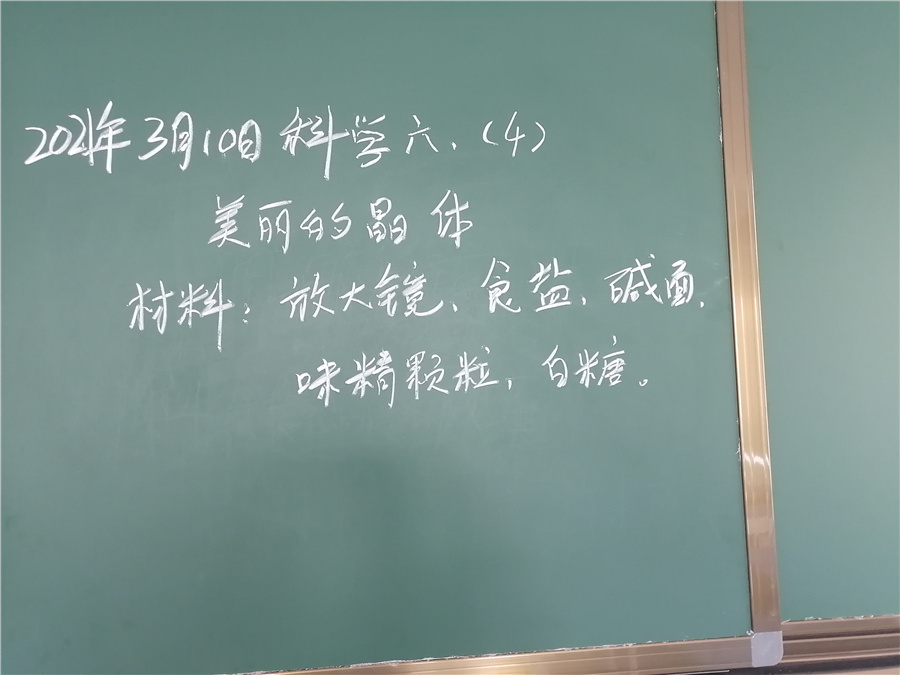 2021年3月10日科学六、(4)
美丽的晶体
材料：放大镜、食盐、碱面、
味精颗粒、白糖。